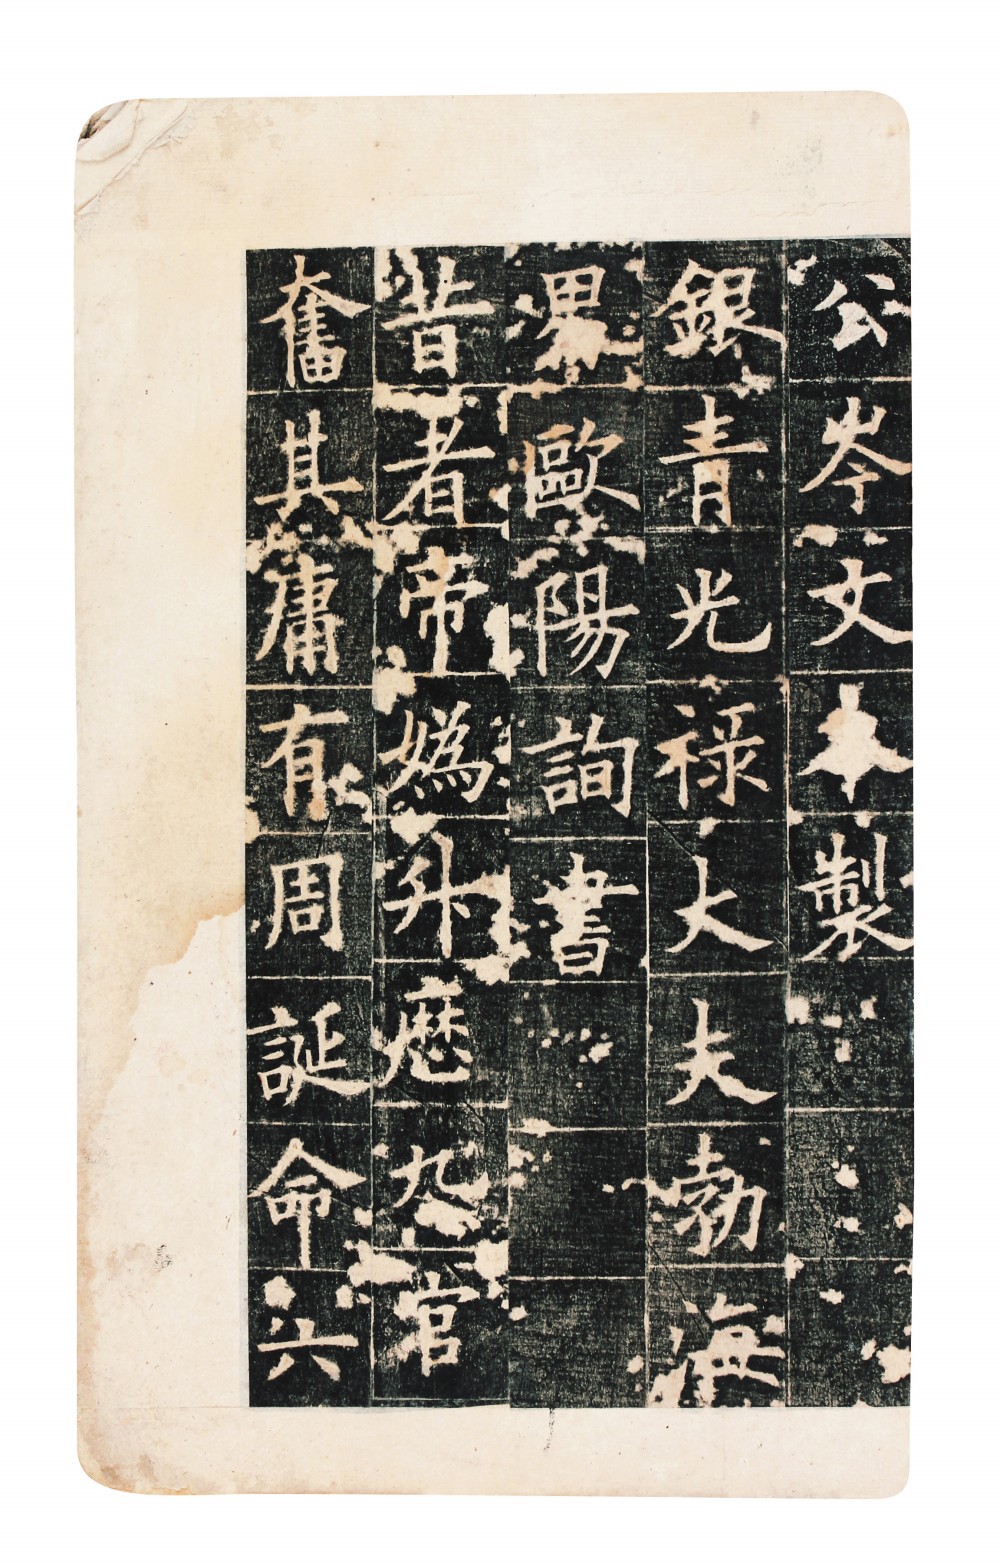 公岑文本製
銀青光祿大夫勃海
男歐陽詢書
昔者帝媯升歷九官
奮其庸有周誕命六